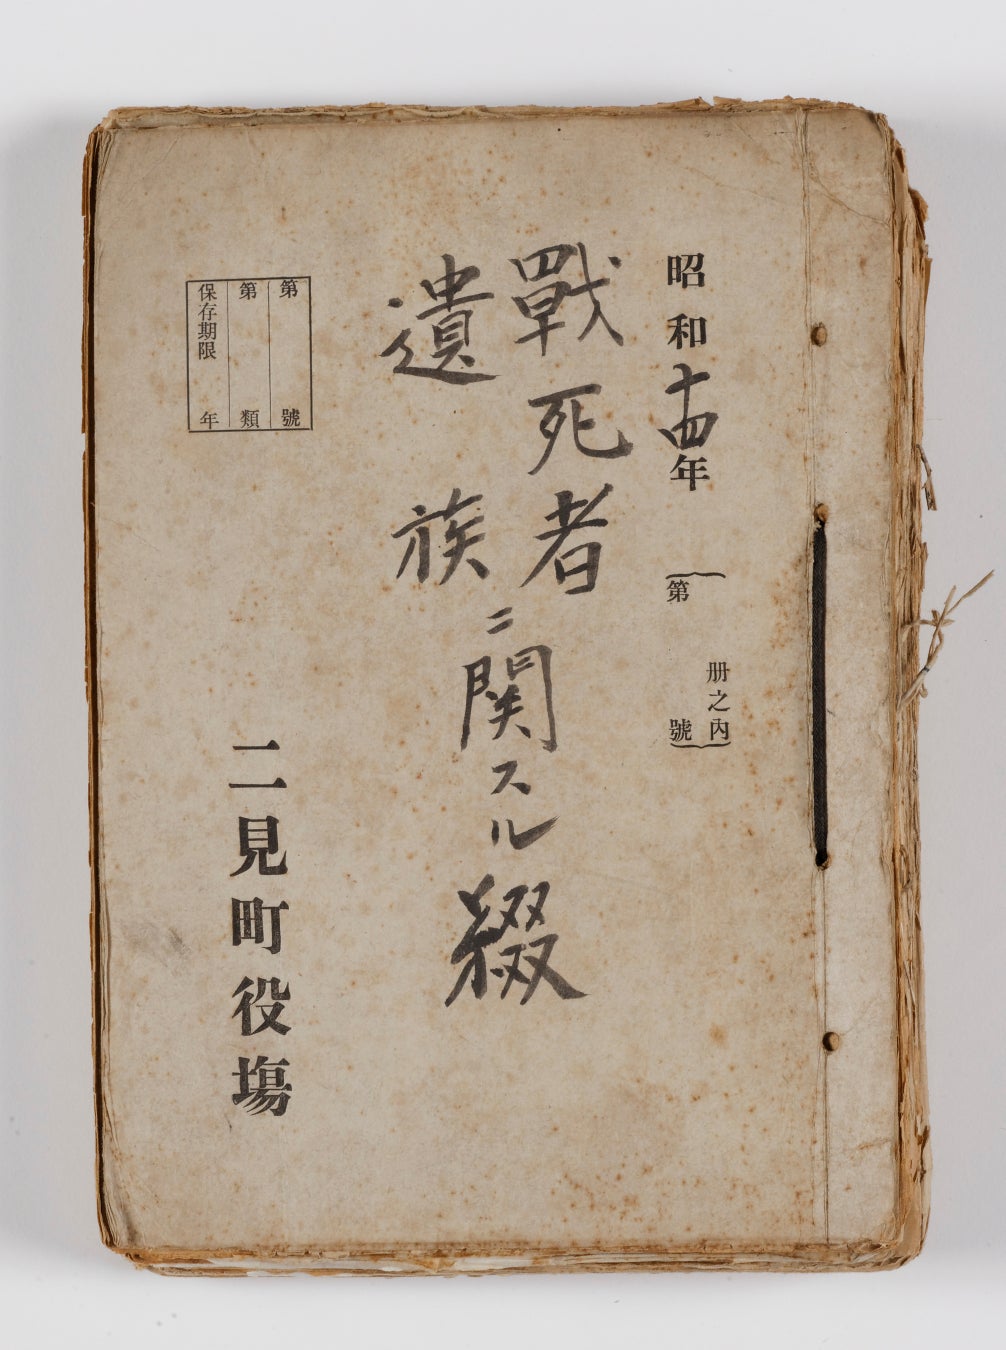 昭和十四年
第　號
册之內
戰死者
遺族
ニ關スル綴
第　號
第　類
保存期限　年
二見町役場